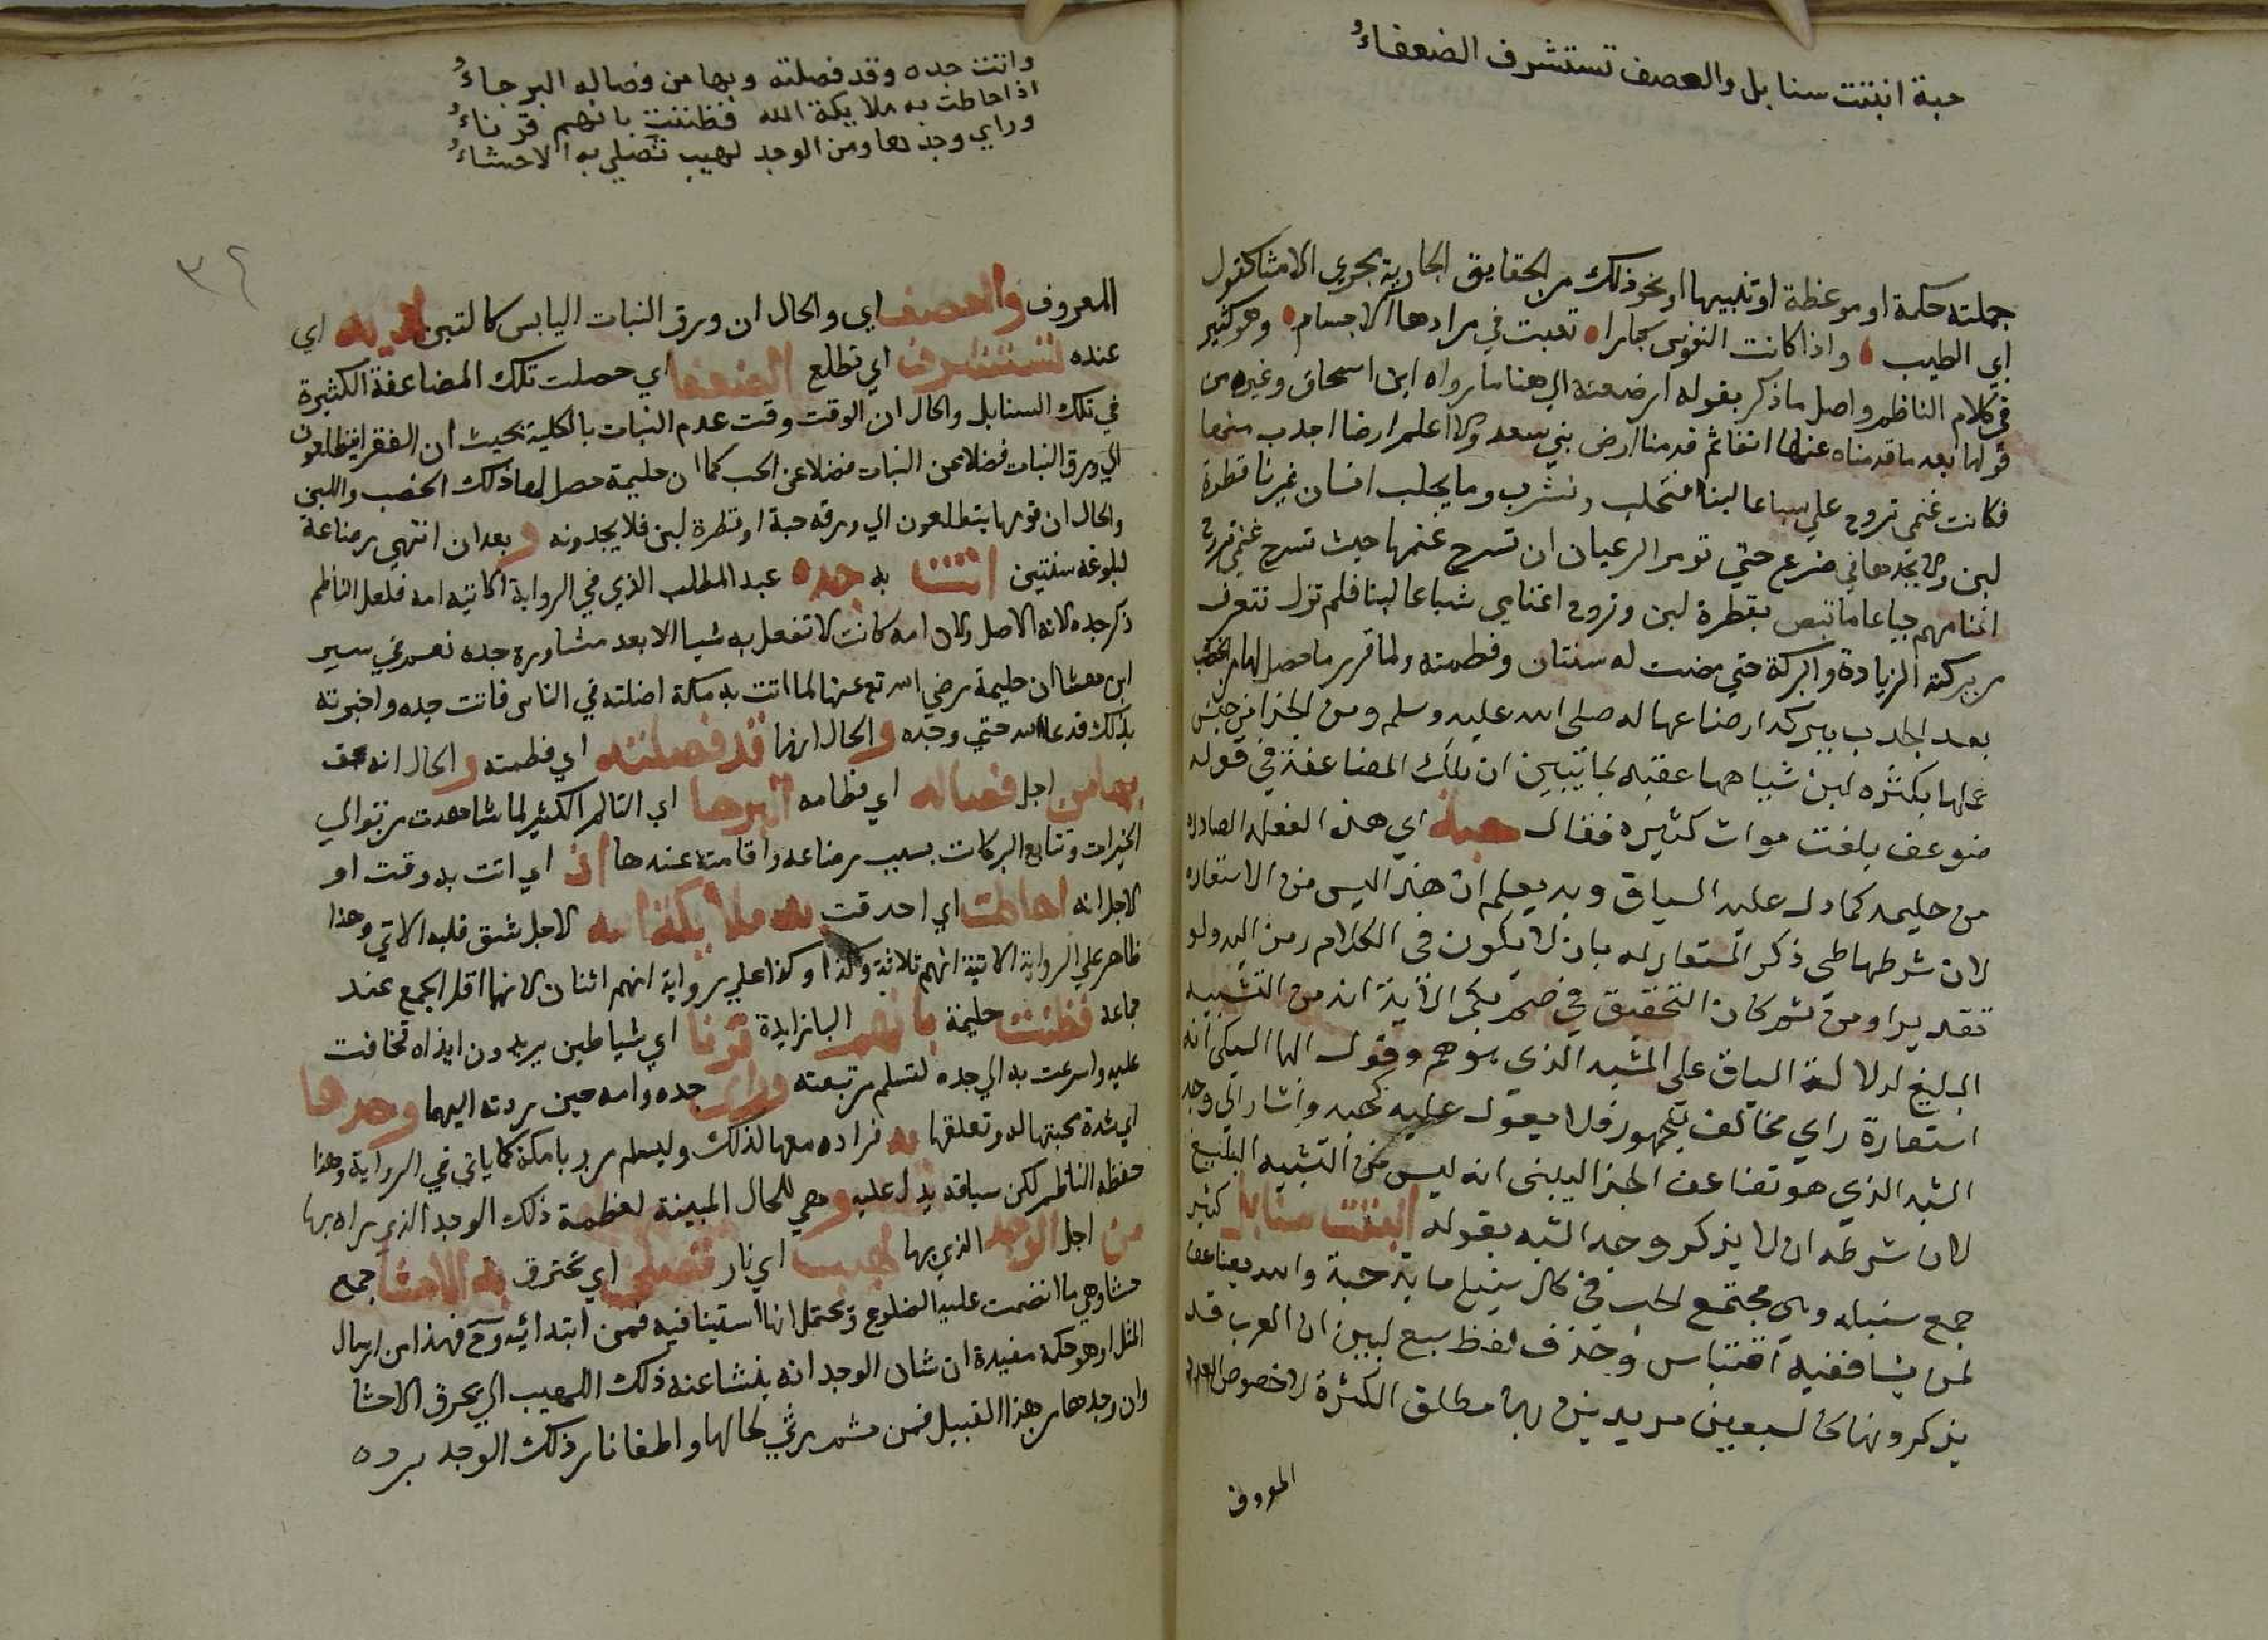 حبة انبتت سنابل والعصف تستشرف الضعفاءُ
جملته حكمة او موعظة او تنبيها او نحو ذلك من الحقايق الجارية مجري الامثا كقول
ابي الطيب واذا كانت النفوس كبارا تعبت في مرادها الاجسام وهو كثير
في كلام الناظم واصل ما ذكر بقوله ارضعته الي هنا ما رواه ابن اسحاق وغيره من
قولها بعد ما قدمناه عنها انفا ثم قدمنا ارض بني سعد ولا اعلم ارضا اجدب منها
فكانت غنمي تروح علي سباعا لبنا فنحلب ونشرب وما يحلب انسان غيرنا قطرة
لبن ولا يجدها في ضرع حتي تومر الرعيان ان تسرح غنمها حيث تسرح غنمي تروح
اغنامهم جياعا ما تبص بقطرة لبن وتروح اغنامي شباعا لبنا فلم تزل تتعرف
من بركته الزيادة والبركة حتي مضت له سنتان وفطمته ولما قرر ما حصل لها من الخصب
بعد الجدب ببركة ارضاعها له صلى الله عليه وسلم ومن الجزا من جنس
عملها بكثره لبن شياهها عقبه بما يبين ان تلك المضاعفة في قوله
ضوعف بلغت موات كثيره فقال حبة اي هذه الفعله الصادره
من حليمه كما دل عليه السياق وبه يعلم ان هذا ليس من الاستعاره
لان شرطها طي ذكر المستعار له بان لا يكون في الكلام رمز اليه ولو
تقديرا ومن ثم كان التحقيق في صم بكم الاية انه من التشبيه
البليغ لدلالة السياق على المشبه الذي هو هم وقول البها السبكي انه
استعارة راي مخالف للجمهور فلا يعول عليه كحبه واشار الي وجه
الشبه الذي هو تضاعف الجزا ليبنى انه ليس من التشبيه البليغ
لان شرطه ان لا يذكر وجه الشبه بقوله انبتت سنابل كثير
جمع سنبله وهي مجتمع الحب في كل سنبله مايه حبة والله يضاعف
لمن يشا ففيه اقتباس وحذف لفظ سبع ليبين ان العرب قد
يذكرونها كالسبعين مريدين بها مطلق الكثرة لا خصوص العدد
المعروف
واتت جده وقد فصلته وبها من فصاله البرحاءُ
اذ احاطت به ملايكة الله فظننت بانهم قرناءُ
وراي وجدها ومن الوجد لهيب تصلي به الاحشاءُ
٣٢
المعروف والعصف اي والحال ان ورق النبات اليابس كالتبن لديه اي
عنده تستشرف اي تطلع الضعفا اي حصلت تلك المضاعفة الكثيرة
في تلك السنابل والحال ان الوقت وقت عدم النبات بالكلية بحيث ان الفقرا يتطلعون
الي ورق النبات فضلا عن النبات فضلا عن الحب كما ان حليمة حصل لها ذلك الخصب واللبن
والحال ان قومها يتطلعون الي ورقه حبة او قطرة لبن فلا يجدونه و بعد ان انتهي رضاعة
لبلوغه سنتين اتت به جده عبد المطلب الذي في الرواية الاتية امه فلعل الناظم
ذكر جده لانه الاصل ولان امه كانت لا تفعل به شيا الا بعد مشاورة جده نعم في سير
ابن هشا ان حليمة رضي الله تع عنها لما اتت به مكة اضلته في الناس فاتت جده واخبرته
بذلك فدعا الله حتي وجده و الحال انها قد فصلته اي فطمته و الحال انه
بها من اجل فصاله اي فطامه البرحا اي التالم الكثير لما شاهدت من توالي
الخيرات وتتابع البركات بسبب رضاعه واقامته عندها اذ اي اتت به وقت او
لاجل انه احاطت اي احدقت به ملايكة الله لاجل شق قلبه الاتي وهذا
ظاهر علي الرواية الاتية انهم ثلاثة وكذا علي رواية انهم اثنان لانهما اقل الجمع عند
جماعة فظنت حليمة بانهم البا زايدة قرنا اي شياطين يريدون ايذاه فخافت
عليه واسرعت به الي جده لتسلم من تبعته وراي جده وامه حين ردته اليهما وجدها
اي شدة محبتها له وتعلقها به فراده معها لذلك وليسلم من وبا مكة كما ياتي في الرواية وهذا
حفظه الناظم لكن سياقه يدل عليه و هي للحال المبينة لعظمة ذلك الوجد الذي راه بها
من اجل الوجد الذي بها لهيب اي نار تصلي اي تحترق به الاحشا جمع
حشا وهي ما انضمت عليه الضلوع ويحتمل انها استينافيه فمن ابتدائيه وح فهذا من ارسال
المثل او هو حكمة مفيدة ان شان الوجد انه ينشا عنه ذلك اللهيب الذي يحرق الاحشا
وان وجدها من هذا القبيل فمن ثم رثي لحالها واطفا نار ذلك الوجد برده